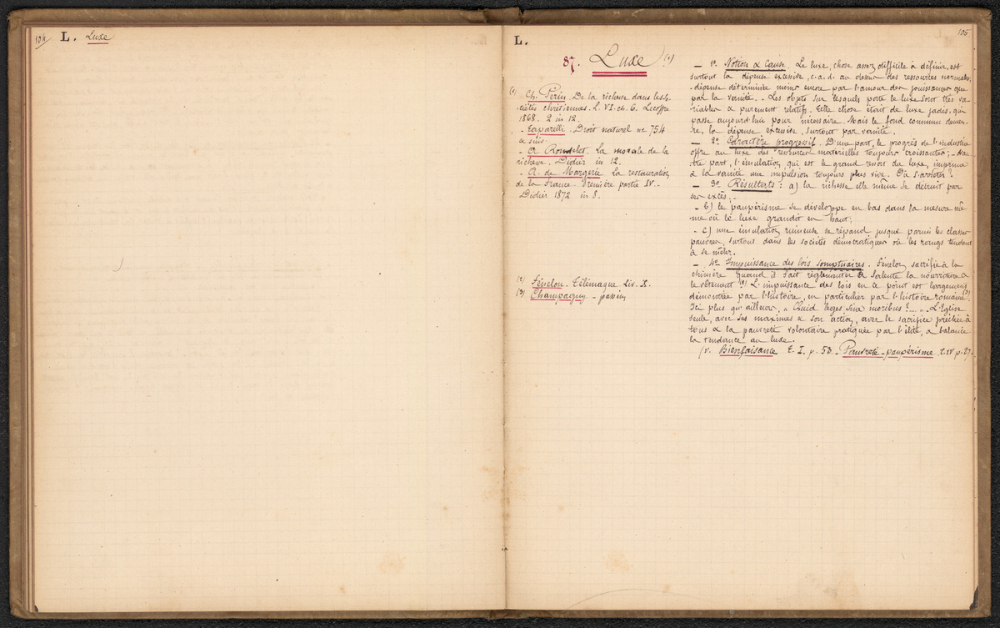 104
L. Luxe
L.
105
87. Luxe (1)
(1) Ch. Périn. De la richesse dans les so-
ciétés chrétiennes. L. VI. ch. 6. Lecoffre
1868. 2 in 12.
- Taparelli. Droit naturel nº 754
& suiv.
- A. Rondelet. La morale de la
richesse. Didier in 12.
- A. de Margerie. La restauration
de la France. Première partie IV.-
Didier 1872 in 8.
(2) Fénelon. Télémaque Liv. X.
(3) Champagny - passim
- 1º. Notion & Cause. Le luxe, chose assez difficile à définir est
surtout la dépense excessive, c.a.d. au dessus des ressources normales,
dépense déterminée moins encore par l'amour des jouissances que
par la vanité. - Les objets sur lesquels porte le luxe sont très va-
riables & purement relatifs. Telle chose était de luxe jadis, qui
passe aujourd'hui pour nécessaire. Mais le fond commun demeu-
re, la dépense excessive, surtout par vanité.
- 2º Caractère progressif. D'une part, le progrès de l'industrie
offre au luxe des ressources matérielles toujours croissantes; d'au-
tre part, l'émulation, qui est le grand ressort du luxe, imprime
à la vanité une impulsion toujours plus vive. Où s'arrêter?
- 3º Résultats: a) la richesse elle même se détruit par
son excès;
- b) le paupérisme se développe en bas dans la mesure mê-
me où le luxe grandit en haut;
- c) une émulation ruineuse se répand jusque parmi les classes
pauvres, surtout dans les sociétés démocratiques où les rangs tendent
à se mêler.
- 4º Impuissance des lois somptuaires. Fénelon sacrifie à la
chimère quand il fait réglementer à Salente la nourriture &
le vêtement (2) L'impuissance des lois en ce point est largement
démontrée par l'histoire, en particulier par l'histoire romaine.
Là plus qu'ailleurs, « Quid leges sine moribus? » - L'Eglise
seule, avec ses maximes & son action, avec le sacrifice prêché à
tous & la pauvreté volontaire pratiquée par l'élite, a balancé
la tendance au luxe.
(v. Bienfaisance T. I. p. 53. - Pauvreté - paupérisme